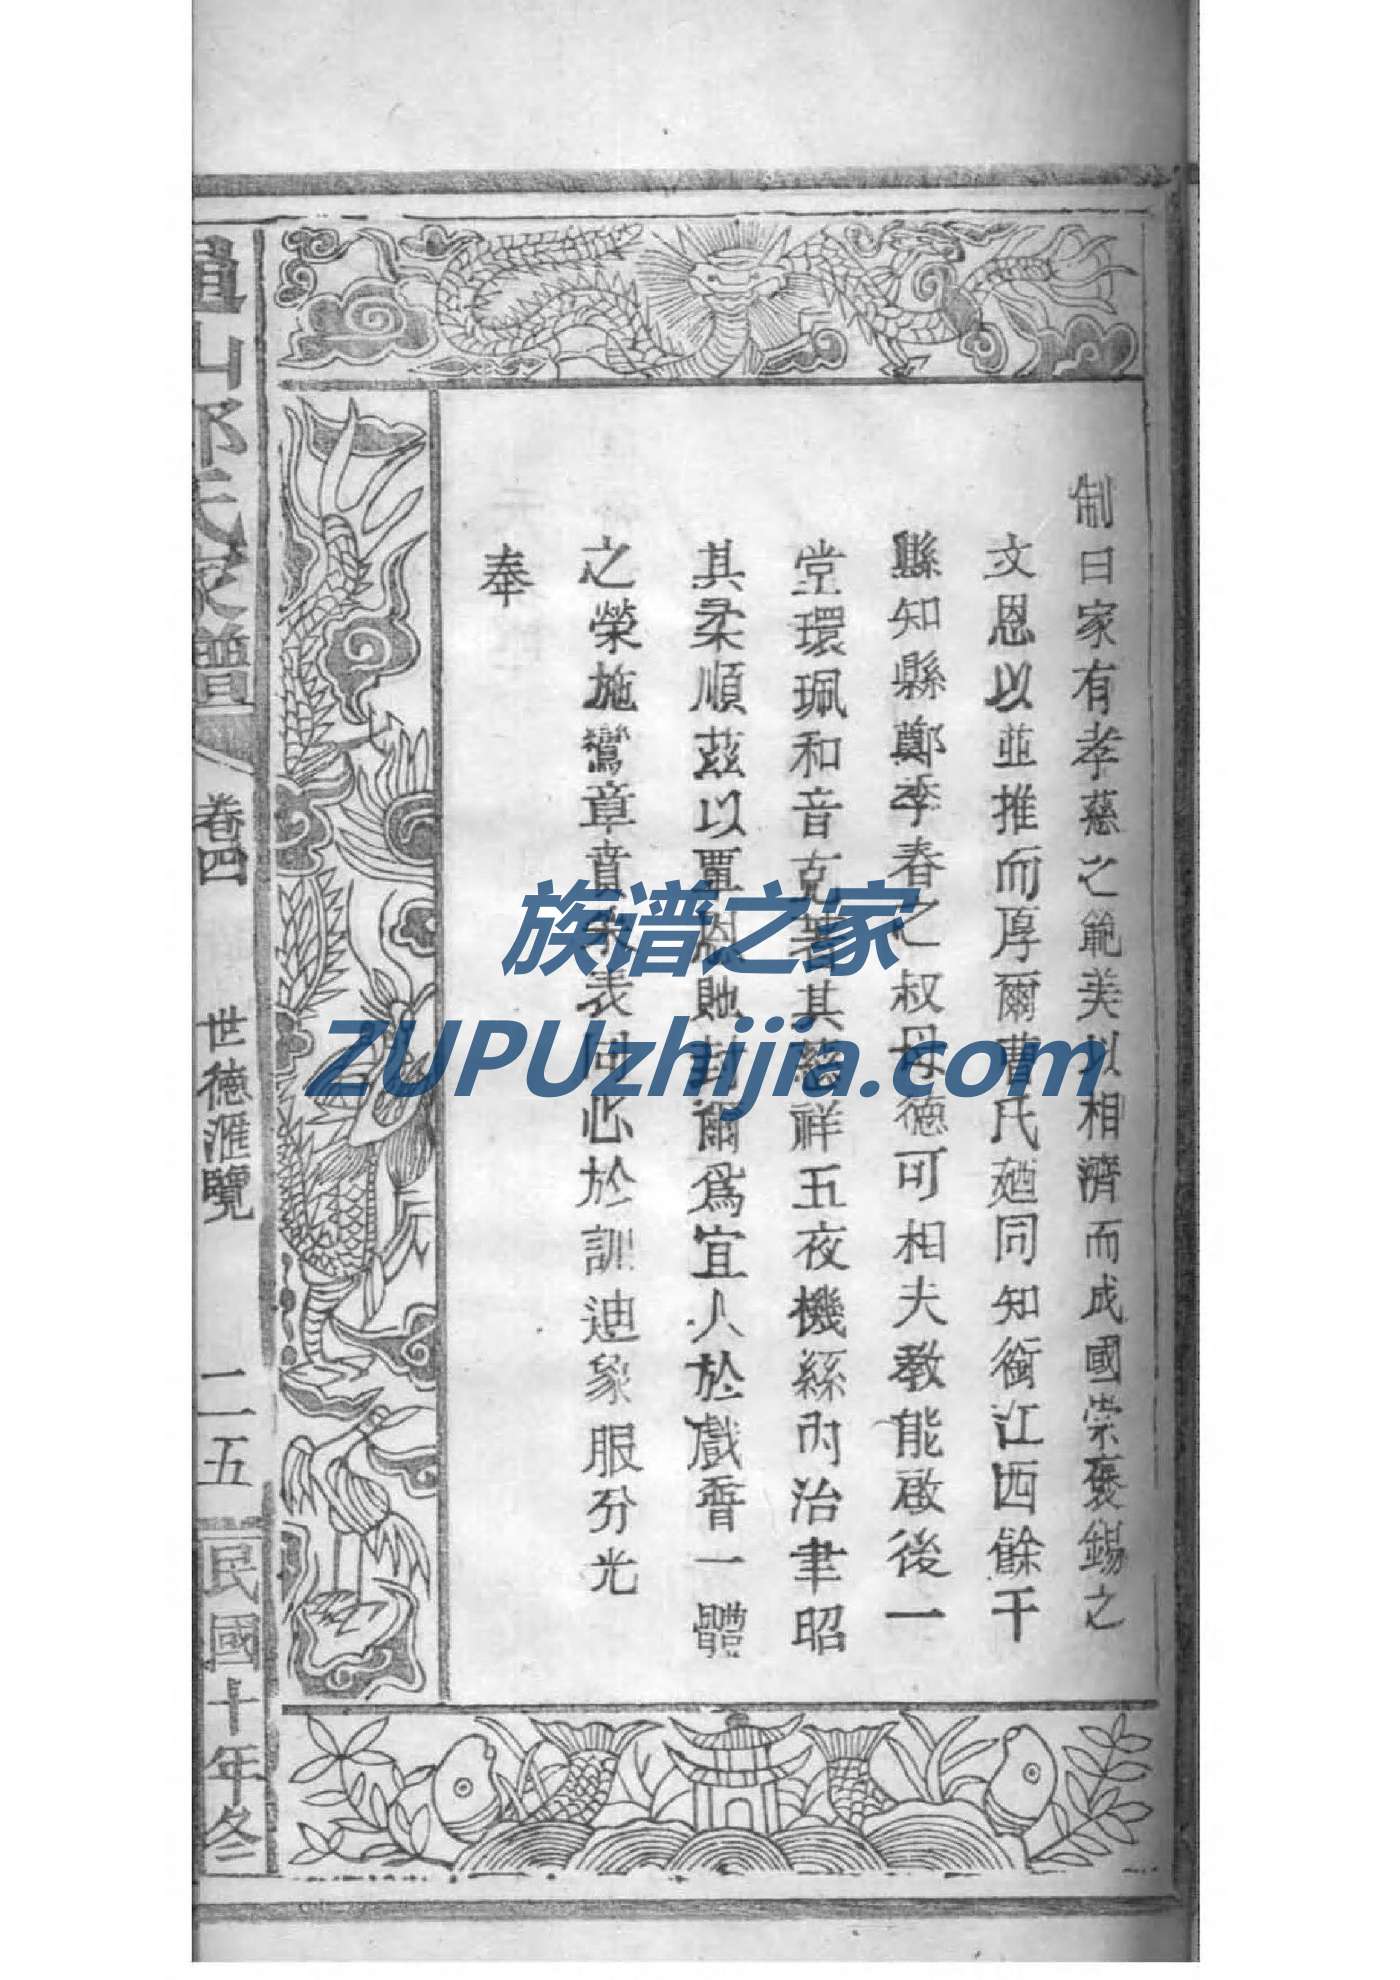 制曰家有孝慈之範美以相濟而成國崇褒錫之
文恩以並推而厚爾曹氏廼同知銜江西餘干
縣知縣鄭季春之叔母德可相夫教能啟後一
堂環珮和音克著其慈祥五夜機絲內治聿昭
其柔順茲以覃恩貤封爾為宜人於戲晉一體
之榮施鸞章賁采表同心於訓迪象服分光
奉
山鄭氏家譜
卷四
世德滙覽
二五
民國十年冬
族谱之家
ZUPUzhijia.com